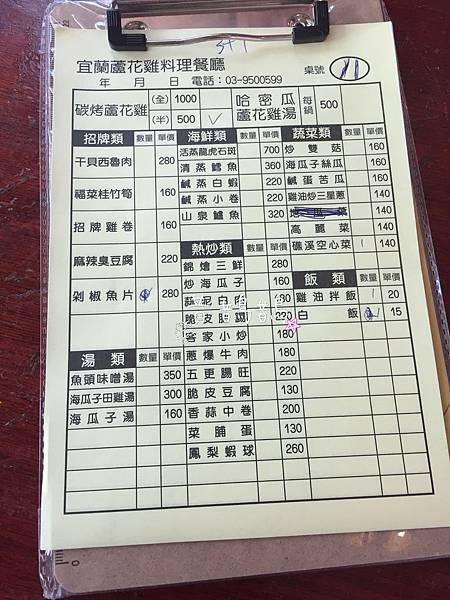 3大1
宜蘭蘆花雞料理餐廳 桌號 11
年 月 日 電話：03-9500599
碳烤蘆花雞 (全) 1000
(半) 500 ✓
哈密瓜蘆花雞湯 每鍋 500
招牌類 數量 單價
干貝西魯肉 280
福菜桂竹筍 160
招牌雞卷 160
麻辣臭豆腐 220
剁椒魚片 280
湯類 數量 單價
魚頭味噌湯 350
海瓜子田雞湯 300
海瓜子湯 160
海鮮類 數量 單價
活蒸龍虎石斑 700
清蒸鱈魚 360
鹹蒸白蝦 280
鹹蒸小卷 220
山泉鱸魚 320
熱炒類
錦燴三鮮 280
炒海瓜子 160
脆皮肥腸 220
客家小炒 180
蔥爆牛肉 180
五更腸旺 220
脆皮豆腐 130
香蒜中卷 200
菜脯蛋 130
鳳梨蝦球 260
蔬菜類 數量 單價
炒雙菇 160
海瓜子絲瓜 160
鹹蛋苦瓜 160
雞油炒三星蔥 140
140
高麗菜 140
礁溪空心菜 1 140
飯類 數量 單價
雞油拌飯 1 20
白飯 15